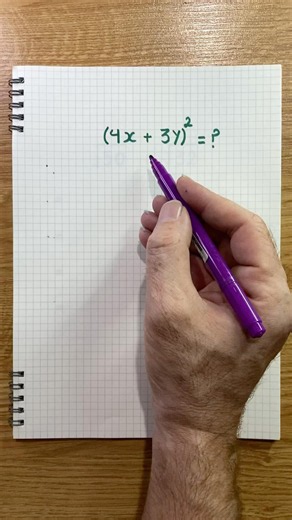 (4x + 3y)² = ?